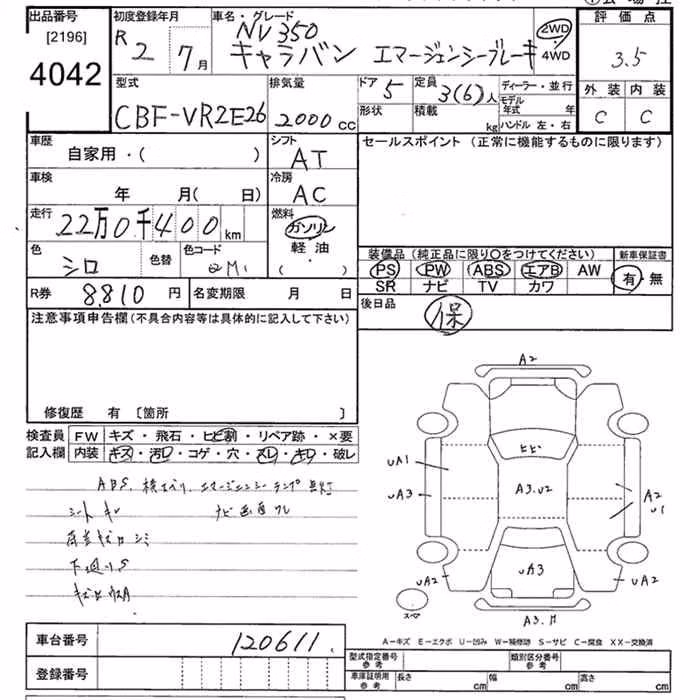 出品番号 初度登録年月 車名・グレード 評価点
[2196] R2 7月 NV350 2WD
4042 キャラバン エマージェンシーブレーキ 4WD 3.5
型式 排気量 ドア 5 定員 3(6)人 ディーラー・並行 外装 内装
CBF-VR2E26 2000 CC 形状 積載 kg モデル年式 年 C C
ハンドル 左・右
車歴 シフト セールスポイント (正常に機能するものに限ります)
自家用・( ) AT
車検 冷房
年 月( 日) AC
走行 燃料
22万0千400km ガソリン
軽油
・( )
色 色替 色コード 装備品(純正品に限り○をつけてください) 新車保証書
シロ QM1 PS PW ABS エアB AW 有・無
SR ナビ TV カワ
R券 8,810 円 名変期限 月 日 後日品
注意事項申告欄(不具合内容等は具体的に記入して下さい) 保
修復歴 有 〔箇所 〕
検査員 FW キズ・飛石・ヒビ割・リペア跡・×要
記入欄 内装 キズ・汚レ・コゲ・穴・スレ・キレ・破レ
ABS、横スベリ、エマージェンシーランプ点灯
シート キレ ナビ画面ワレ
下廻りS
A2
ヒビ
UA1
UA3 A3.U2 A2
U1
UA2 UA3 UA2
スペア
A3.
A-キズ E-エクボ U-凹み W-補修跡 S-サビ C-腐食 XX-交換済
車台番号 120611 型式指定番号 参考 類別区分番号 参考
登録番号 車庫証明用 参考 長さ cm 幅 cm 高さ cm